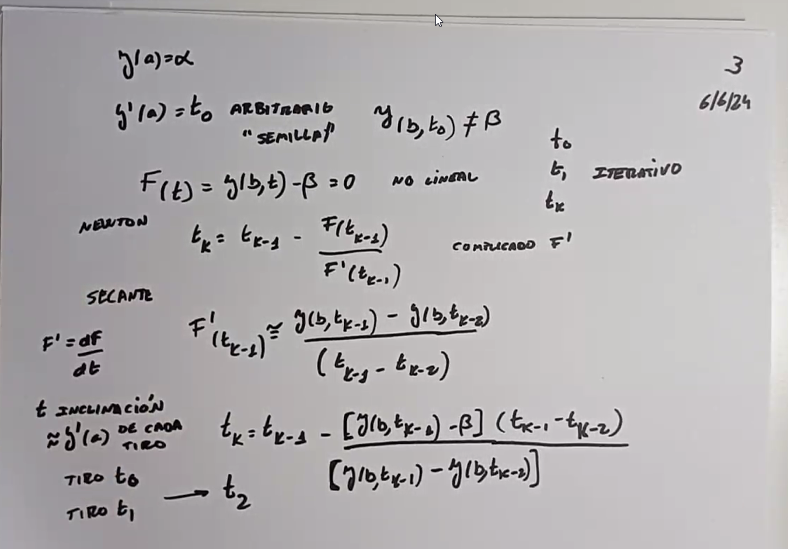 3
6/6/24
y(a)=α
y'(a) = t₀ ARBITRARIO "SEMILLA" y(b,t₀) ≠ β
F(t) = y(b,t) - β = 0 NO LINEAL
t₀
t₁ ITERATIVO
tₖ
NEWTON
tₖ = tₖ₋₁ - F(tₖ₋₁) / F'(tₖ₋₁) COMPLICADO F'
SECANTE
F' = df/dt
F'(tₖ₋₁) ≅ y(b,tₖ₋₁) - y(b,tₖ₋₂) / (tₖ₋₁ - tₖ₋₂)
t INCLINACIÓN
≈ y'(a) DE CADA TIRO
tₖ = tₖ₋₁ - [y(b,tₖ₋₁) - β] (tₖ₋₁ - tₖ₋₂) / [y(b,tₖ₋₁) - y(b,tₖ₋₂)]
TIRO t₀
TIRO t₁ → t₂